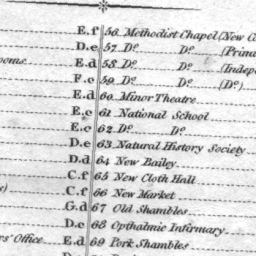 E.f 56 Methodist Chapel (New C
D.e 57 Do. Do. (Prim
ooms E.d 58 Do. Do. (Indep
F.c 59 Do. Do. (Do.)
E.d 60 Minor Theatre
E.e 61 National School
E.c 62 Do. Do.
D.e 63 Natural History Society
D.d 64 New Bailey
C.f 65 New Cloth Hall
s) C.f 66 New Market
G.d 67 Old Shambles
D.c 68 Opthalmic Infirmary
rs' Office E.d 69 Pork Shambles